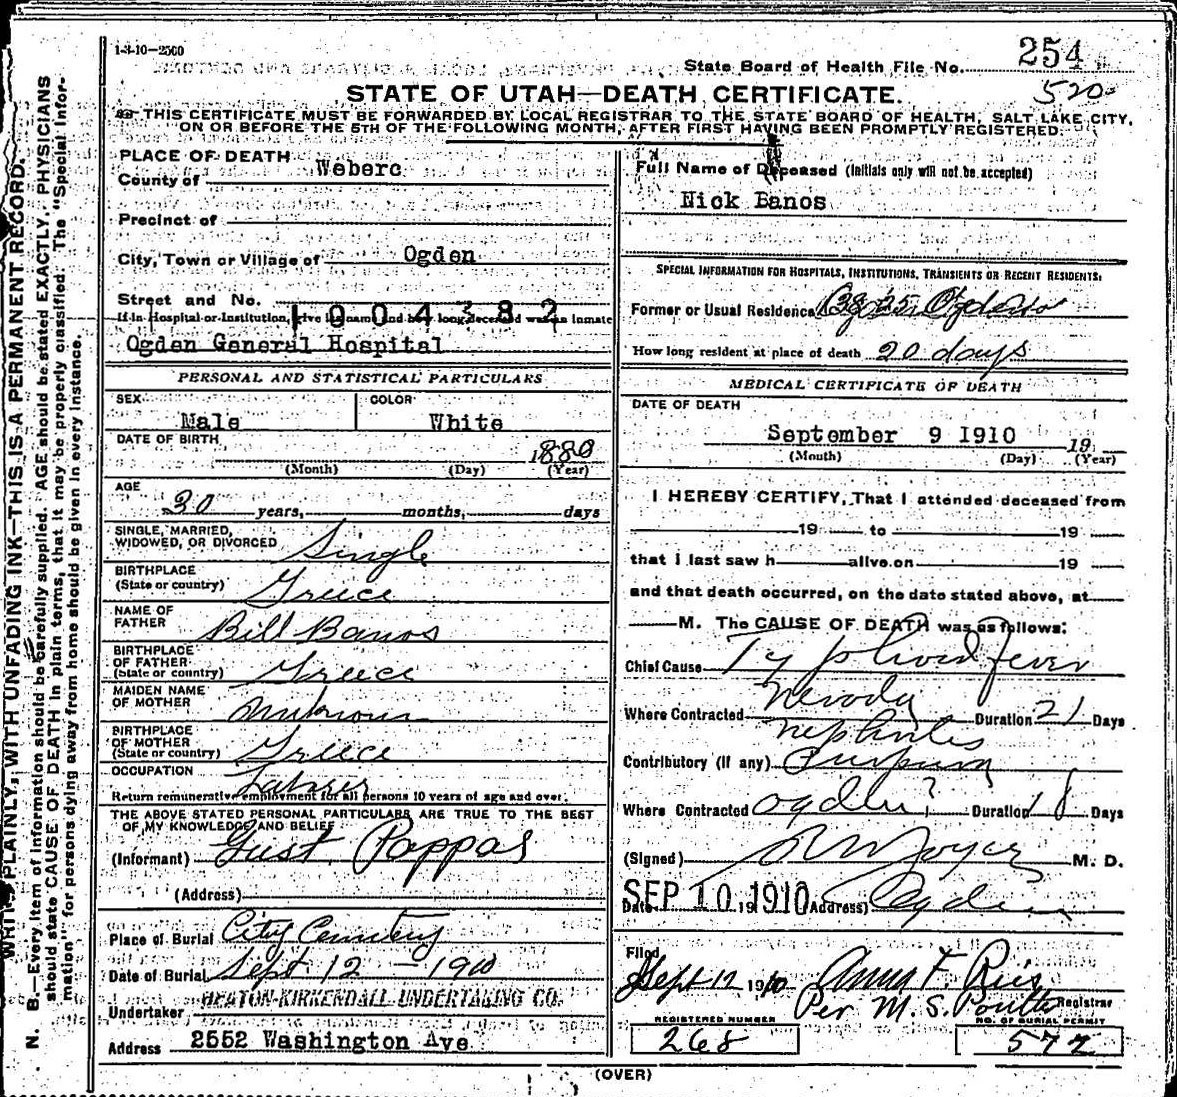 1-3-10—2500
State Board of Health File No. 254
520
STATE OF UTAH—DEATH CERTIFICATE.
THIS CERTIFICATE MUST BE FORWARDED BY LOCAL REGISTRAR TO THE STATE BOARD OF HEALTH, SALT LAKE CITY,
ON OR BEFORE THE 5TH OF THE FOLLOWING MONTH, AFTER FIRST HAVING BEEN PROMPTLY REGISTERED.
WRITE PLAINLY, WITH UNFADING INK—THIS IS A PERMANENT RECORD.
N. B.—Every item of information should be carefully supplied. AGE should be stated EXACTLY. PHYSICIANS
should state CAUSE OF DEATH in plain terms, that it may be properly classified. The "Special Infor-
mation" for persons dying away from home should be given in every instance.
PLACE OF DEATH
County of Weberc
Precinct of
City, Town or Village of Ogden
Street and No.
1004382
If in Hospital or Institution, give its name and how long deceased was an inmate
Ogden General Hospital
PERSONAL AND STATISTICAL PARTICULARS
SEX Male COLOR White
DATE OF BIRTH 1880
(Month) (Day) (Year)
AGE
30 years, months, days
SINGLE, MARRIED,
WIDOWED, OR DIVORCED Single
BIRTHPLACE
(State or country) Greece
NAME OF
FATHER Bill Banos
BIRTHPLACE
OF FATHER
(State or country) Greece
MAIDEN NAME
OF MOTHER Unknown
BIRTHPLACE
OF MOTHER
(State or country) Greece
OCCUPATION Laborer
Return remunerative employment for all persons 10 years of age and over.
THE ABOVE STATED PERSONAL PARTICULARS ARE TRUE TO THE BEST
OF MY KNOWLEDGE AND BELIEF
(Informant) Gust Pappas
(Address)
Place of Burial City Cemetery
Date of Burial Sept 12 — 1910
HEATON-KIRKENDALL UNDERTAKING CO.
Undertaker
Address 2552 Washington Ave
Full Name of Deceased (Initials only will not be accepted)
Nick Banos
SPECIAL INFORMATION FOR HOSPITALS, INSTITUTIONS, TRANSIENTS OR RECENT RESIDENTS:
Former or Usual Residence
How long resident at place of death 20 days
MEDICAL CERTIFICATE OF DEATH
DATE OF DEATH
September 9 1910 19
(Month) (Day) (Year)
I HEREBY CERTIFY, That I attended deceased from
19 to 19
that I last saw h alive on 19
and that death occurred, on the date stated above, at
M. The CAUSE OF DEATH was as follows:
Chief Cause Typhoid fever
Where Contracted Nevada Duration 21 Days
nephritis
Contributory (if any) Purpura
Where Contracted Ogden? Duration 18 Days
(Signed) M. D.
SEP 10 1910
Date 19 (Address) Ogden
Filed
Sept 12 1910 Anna F. Ries
Per M. S. Poulter Registrar
REGISTERED NUMBER NO. OF BURIAL PERMIT
268 572
(OVER)